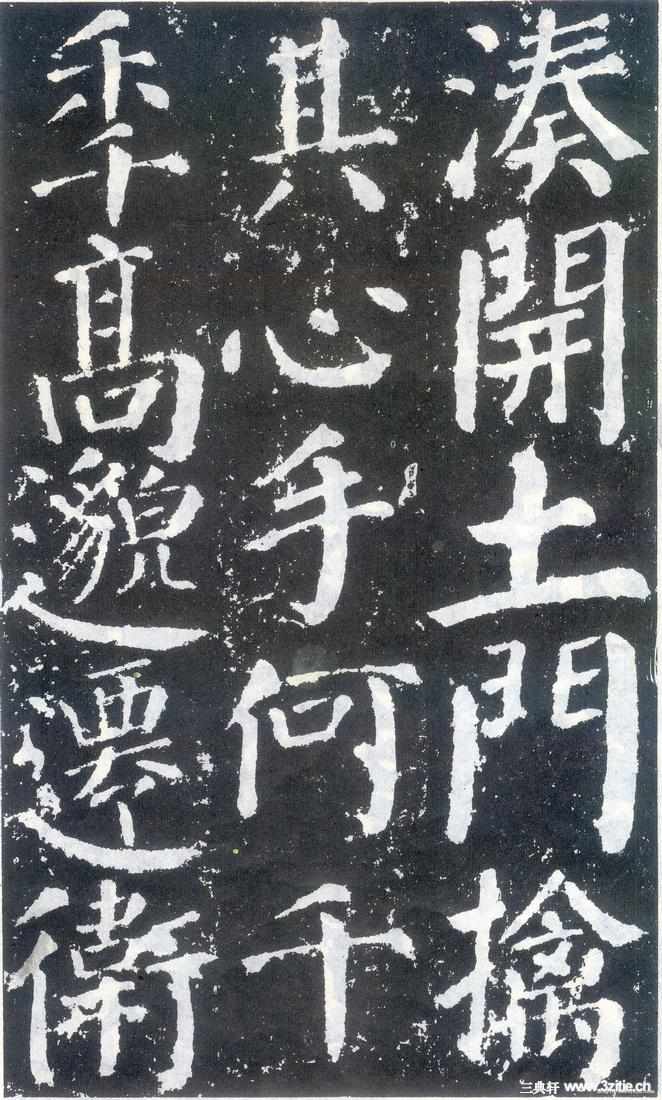 湊開土門擒
其心手何千
秊髙邈遷衛
三典轩 www.3zitie.cn